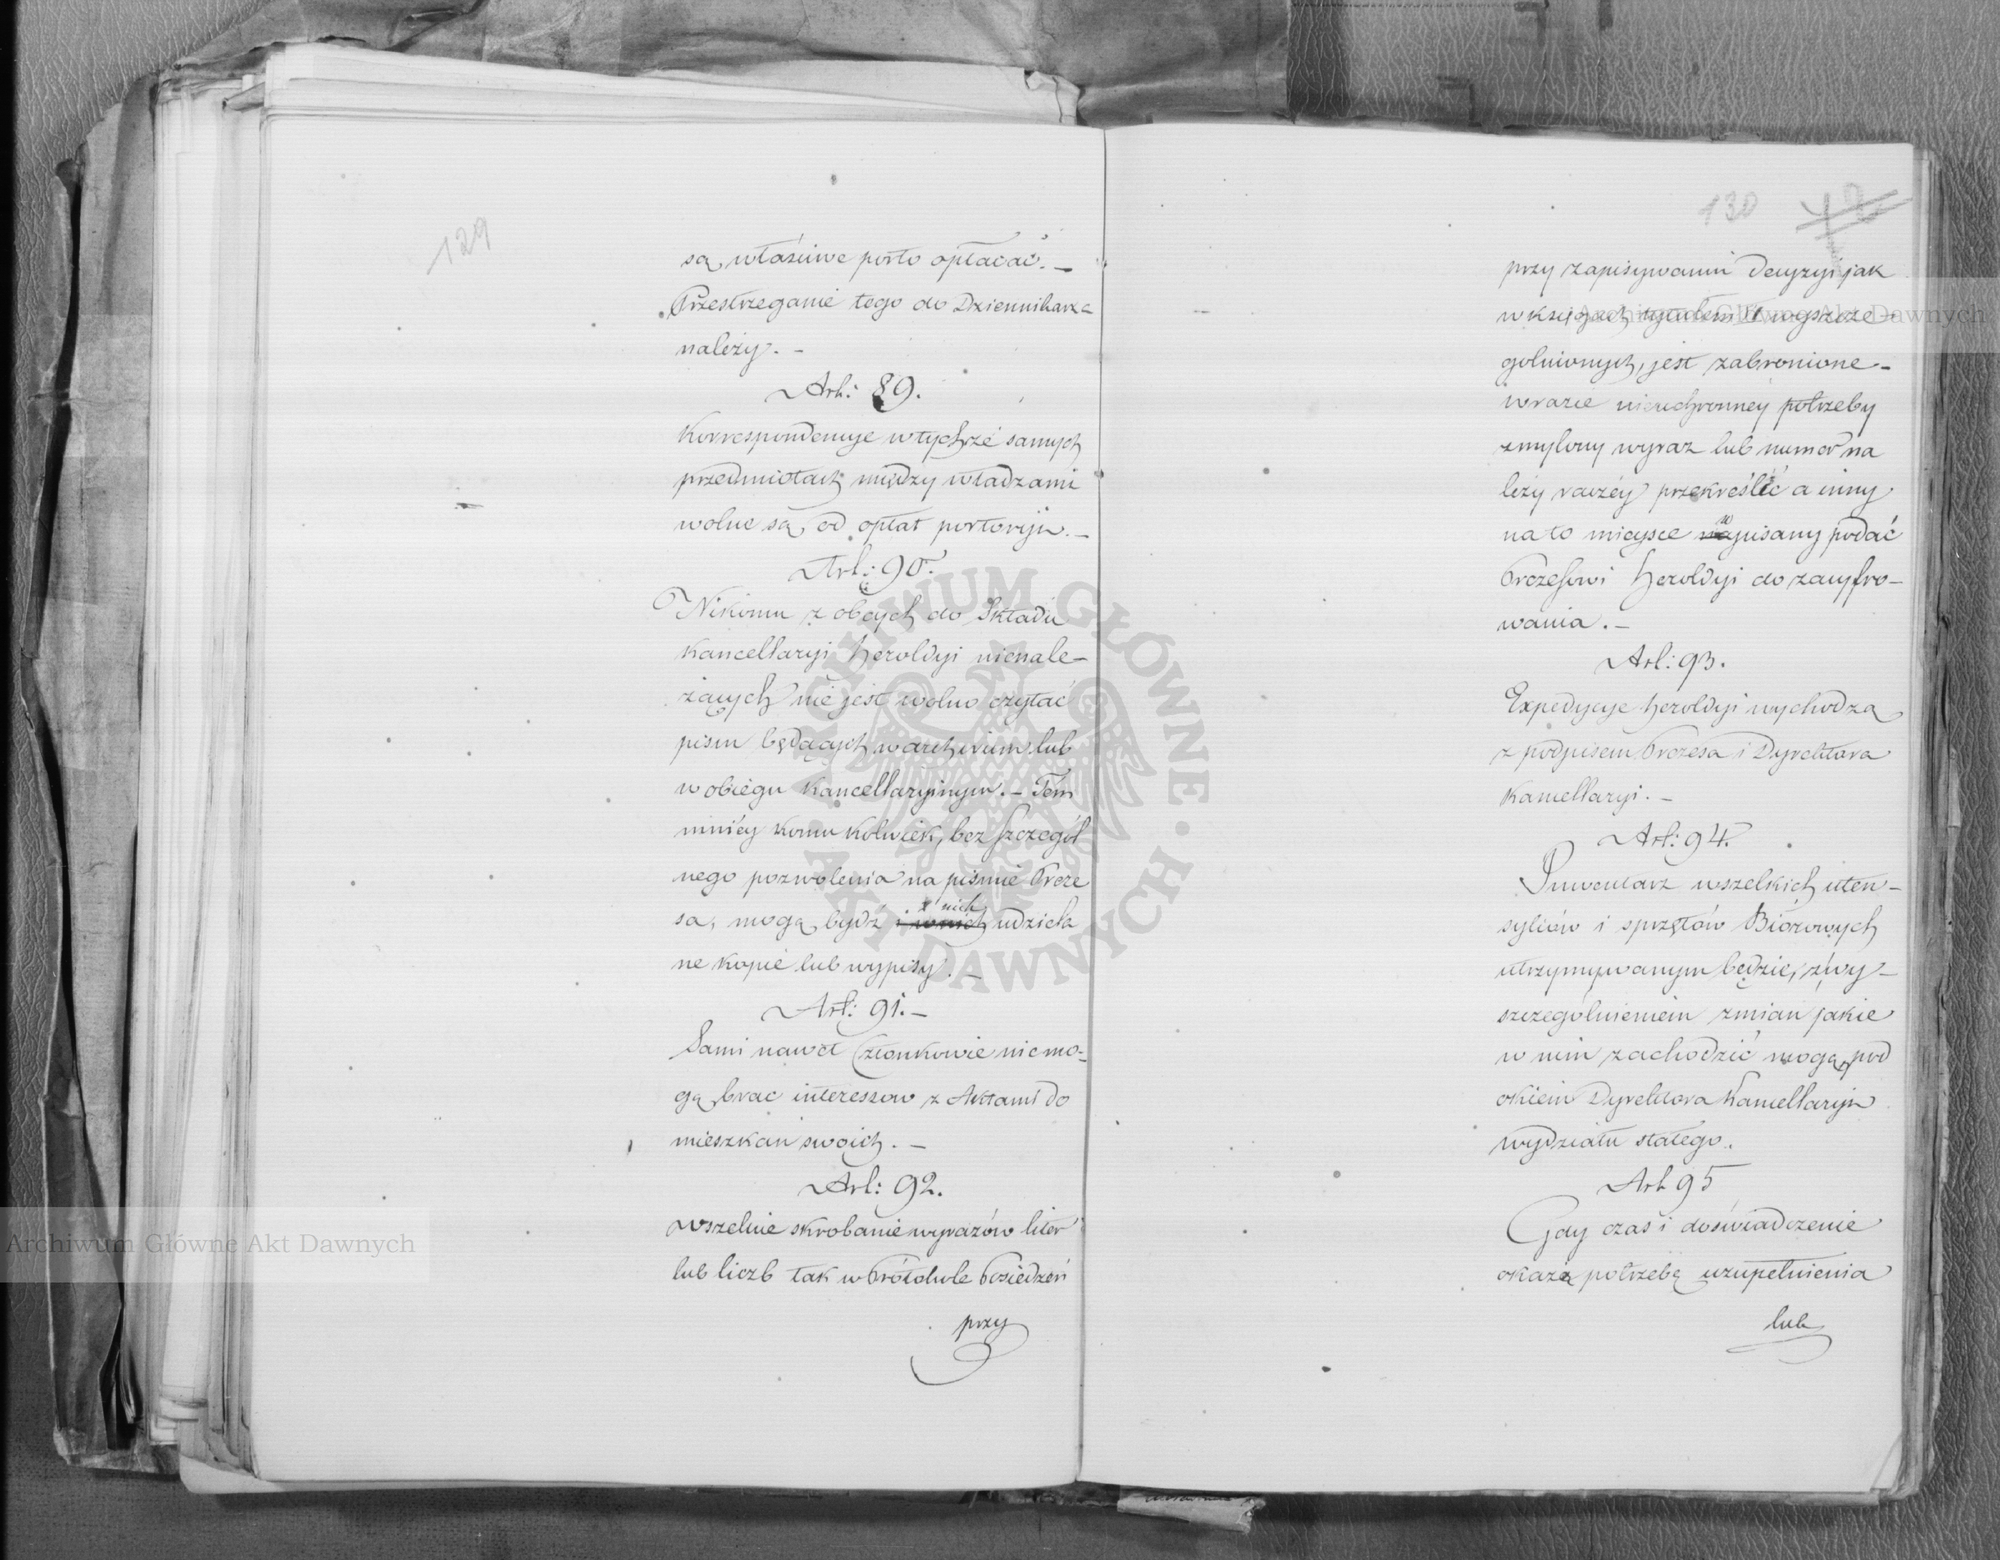 129
są właściwe porto opłacać. —
Przestrzeganie tego do Dziennikarza
należy. —
Art: 89.
Korrespondencye w tychże samych
przedmiotach między władzami
wolne są od opłat portoryjn. —
Art: 90.
Nikomu z obcych do Składu
Kancellaryi Heroldyi nienale-
żących nie jest wolno czytać
pism będących w archiwum lub
w obiegu Kancellaryinym. — Tem
mniéy komu kolwiek, bez szczegól
nego pozwolenia na piśmie Preze
sa, mogą bydź z nich udziela
ne kopie lub wypisy. —
Art: 91. —
Sami nawet Członkowie nie mo-
gą brac interessow z Aktami do
mieszkan swoich. —
Art: 92.
Wszelkie skrobanie wyrazów liter
lub liczb tak w Prótokule Posiedzeń
przy
130
przy zapisywaniu Decyzyi jak
w księgach tytułem II wyszcze-
gulnionych, jest zabronione —
w razie nieuchronney potrzeby
zmylony wyraz lub numer na
leży raczéy przekreślić a inny
na to mieysce wpisany podać
Prezesowi Heroldyi do zacyfro-
wania. —
Art: 93.
Expedycye Heroldyi wychodza
z podpisem Prezesa i Dyrektora
Kancellaryi. —
Art: 94.
Inwentarz wszelkich uten-
syliów i sprzętów Biórowych
utrzymywanym będzie, z wy-
szczególnieniem zmian jakie
w nim zachodzić mogą, pod
okiem Dyrektora Kancellaryi
wydziału stałego.
Art 95
Gdy czas i doświadczenie
okażą potrzebę uzupełnienia
lub
Archiwum Główne Akt Dawnych
Archiwum Główne Akt Dawnych
ARCHIWUM GŁÓWNE · AKT DAWNYCH ·